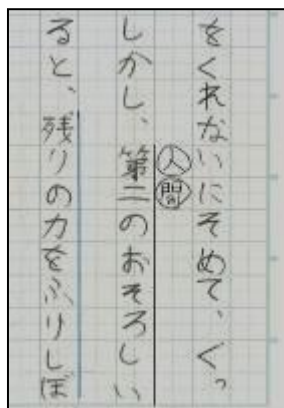 をくれないにそめて、ぐっ
人間
しかし、第二のおそろしい
ると、残りの力をふりしぼ